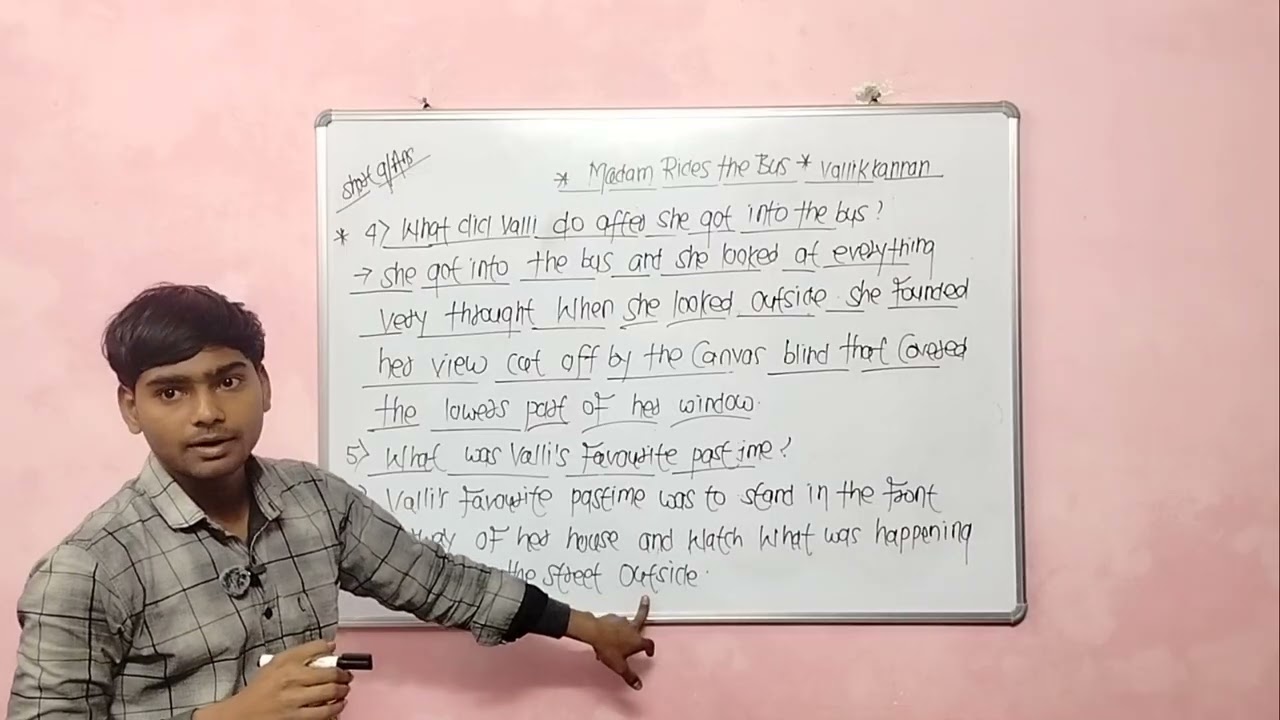 Short Q/Ans
* Madam Rides the Bus * Vallikkannan
* 4> What did Valli do after she got into the bus?
→ she got into the bus and she looked at everything
very throught When she looked outside. she Founded
her view cut off by the Canvas blind that Covered
the lowers part of her window.
5> What was Valli's Favourite pastime?
Valli's Favourite pastime was to stand in the front
of her house and Watch What was happening
the street outside.